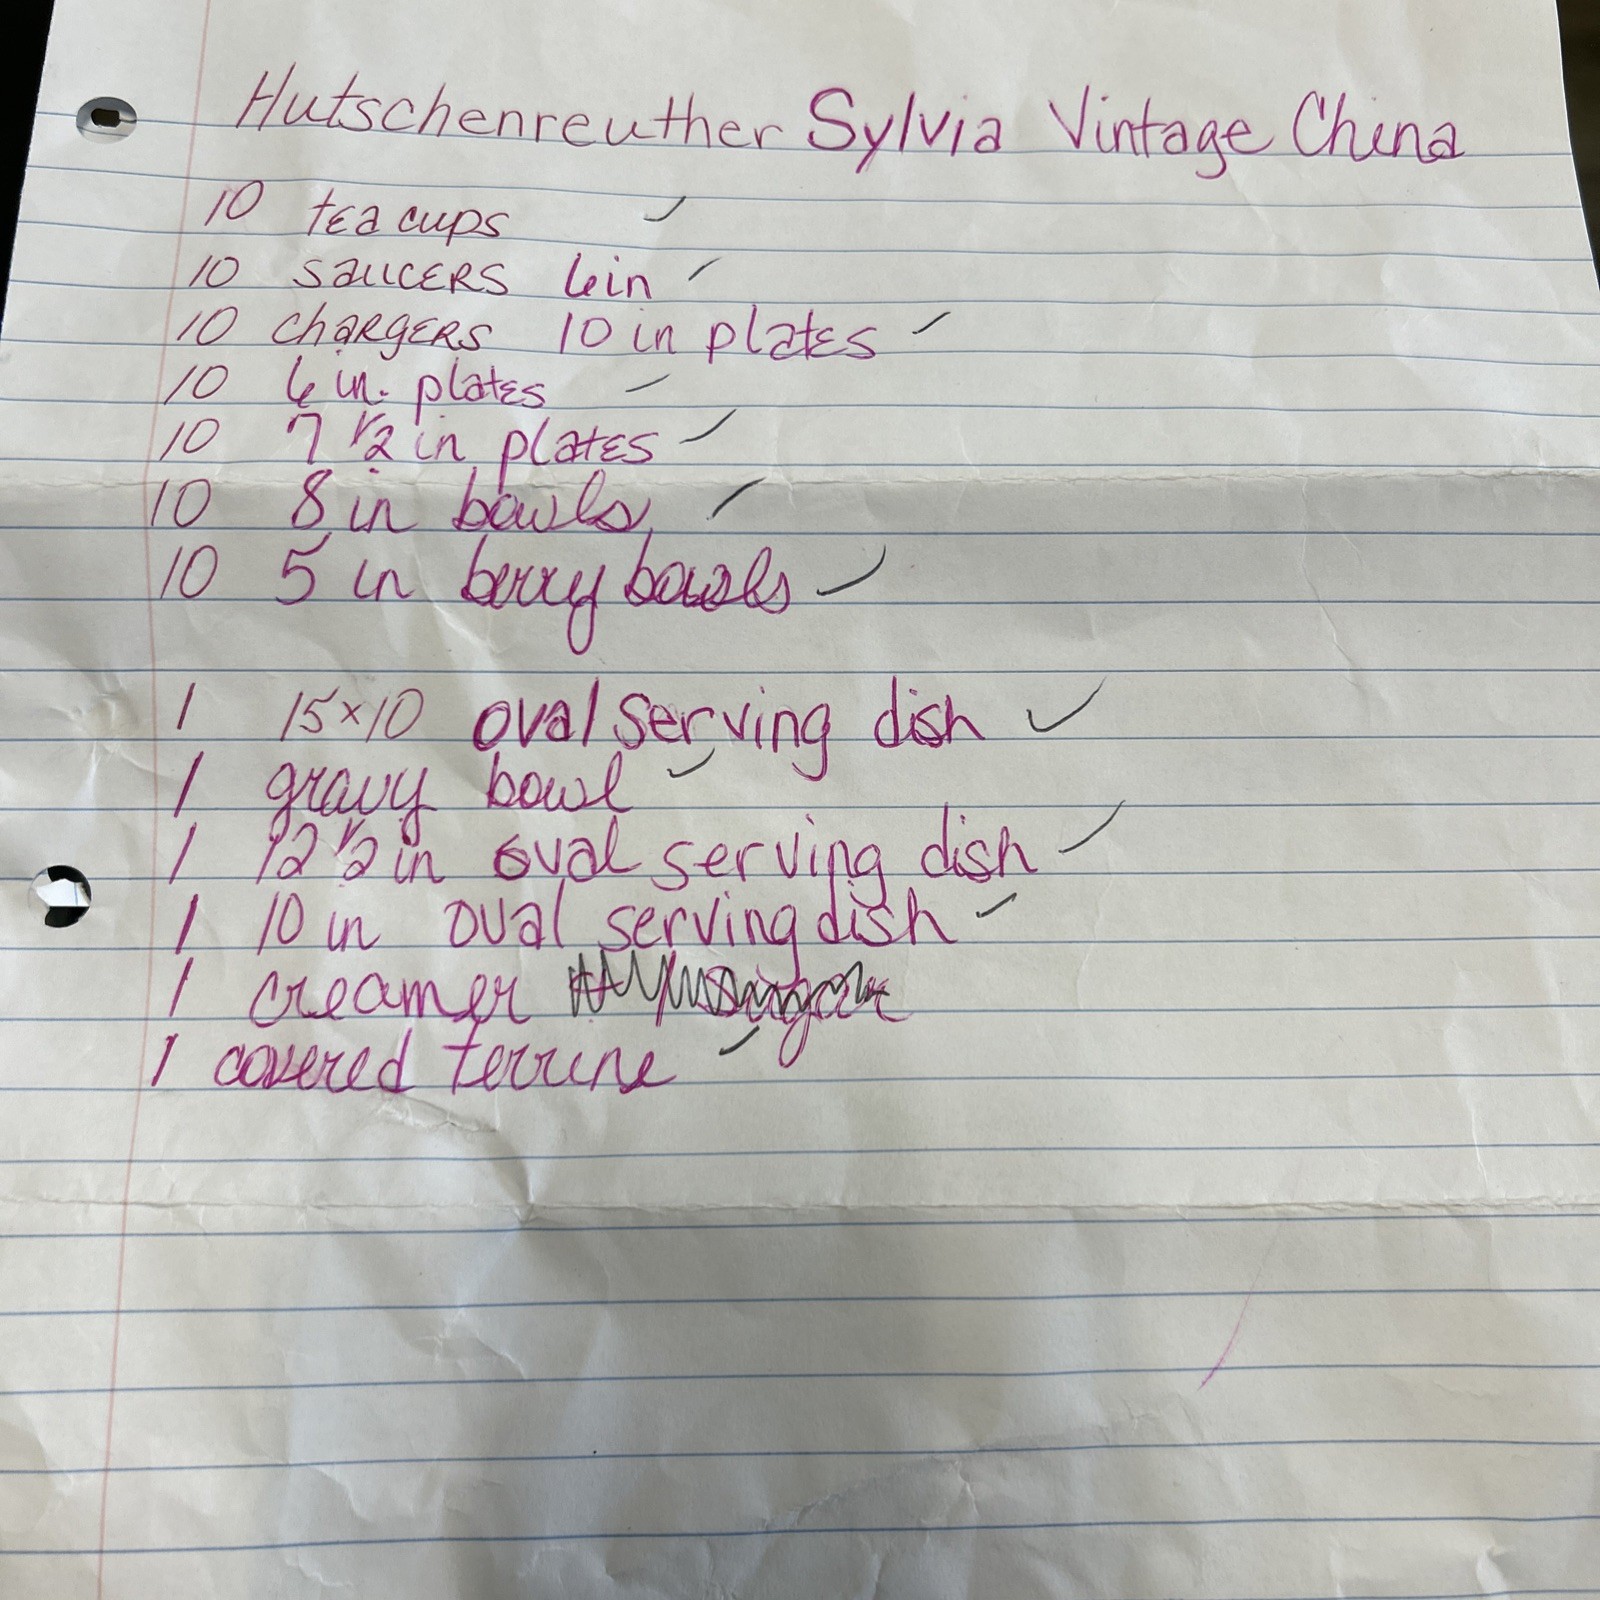 Hutschenreuther Sylvia Vintage China
10 tea cups ✓
10 saucers 6in ✓
10 chargers 10 in plates ✓
10 6 in. plates ✓
10 7 1/2 in plates ✓
10 8 in bowls ✓
10 5 in berry bowls ✓
1 15x10 oval serving dish ✓
1 gravy bowl ✓
1 12 1/2 in oval serving dish ✓
1 10 in oval serving dish ✓
1 creamer
1 covered terrine ✓